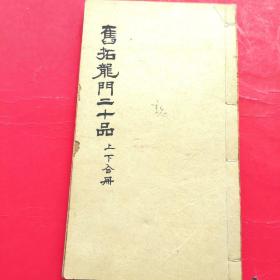 舊拓龍門二十品
上下合冊